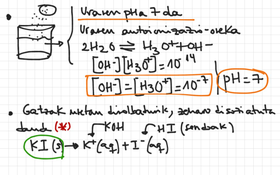 Uraren pHa 7 da
Uraren autoionizazio-oreka
2H₂O ⇌ H₃O⁺ + OH⁻
[OH⁻][H₃O⁺] = 10⁻¹⁴
[OH⁻] = [H₃O⁺] = 10⁻⁷ pH = 7
• Gatzak uretan disolbatzerakoan, zeharo disoziatuta
daude (*) KOH HI (sendoak)
KI(s) → K⁺(aq) + I⁻(aq)